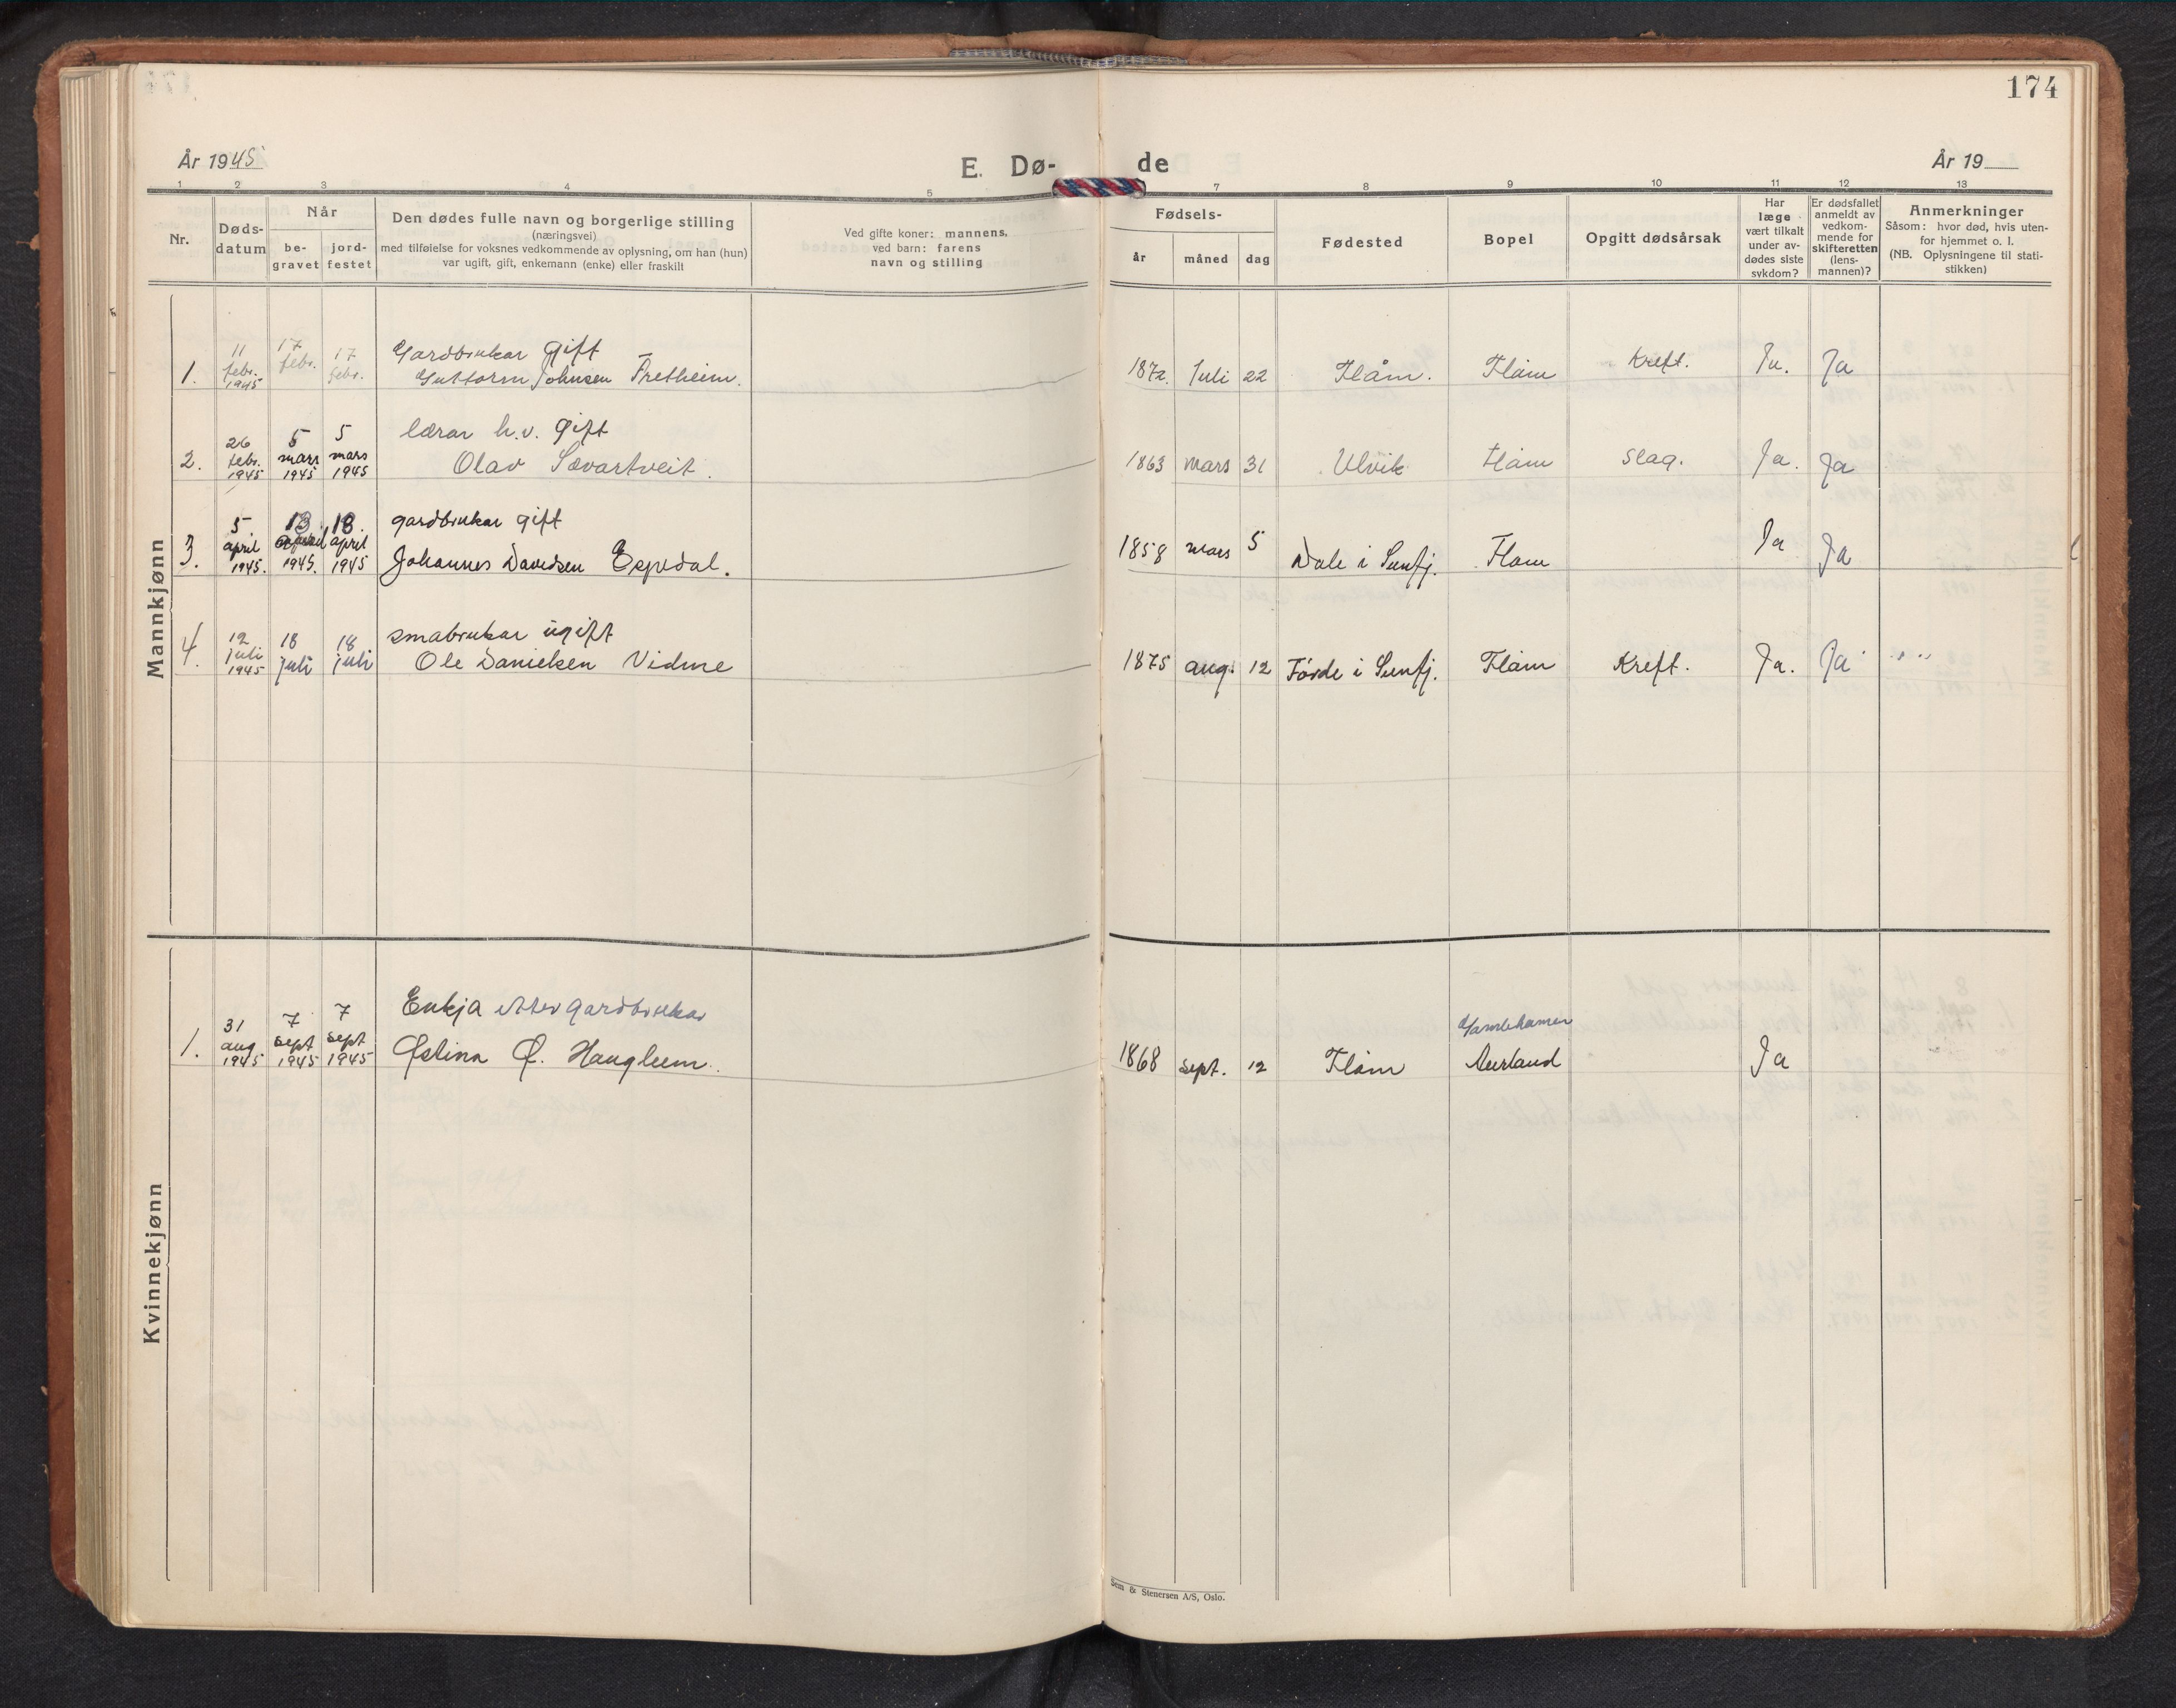 174
År 1945
E. Dø-
de
År 19
1 2 3 4 5 7 8 9 10 11 12 13
Nr.
Døds-
datum
Når
be-
gravet
jord-
festet
Den dødes fulle navn og borgerlige stilling
(næringsvei)
med tilføielse for voksnes vedkommende av oplysning, om han (hun)
var ugift, gift, enkemann (enke) eller fraskilt
Ved gifte koner: mannens,
ved barn: farens
navn og stilling
Fødsels-
år måned dag
Fødested
Bopel
Opgitt dødsårsak
Har
læge
vært tilkalt
under av-
dødes siste
sykdom?
Er dødsfallet
anmeldt av
vedkom-
mende for
skifteretten
(lens-
mannen)?
Anmerkninger
Såsom: hvor død, hvis uten-
for hjemmet o. l.
(NB. Oplysningene til stati-
stikken)
Mannkjønn
1.
11
febr.
1945
17
febr.
17
febr.
Gardbrukar gift
Guttorm Johnsen Fretheim.
1872. Juli 22 Flåm. Flåm Kreft. Ja. Ja
2.
26
febr.
1945
5
mars
1945
5
mars
1945
lærar h.v. gift
Olav Sævartveit.
1863 mars 31 Ulvik Flåm slag. Ja. Ja
3.
5
april
1945.
13
april
1945.
18.
april
1945
gardbrukar gift
Johannes Davidsen Espedal.
1858 mars 5 Dale i Sunfj. Flåm Ja Ja
4.
12
juli
1945
18
juli
18
juli
småbrukar ugift
Ole Danielsen Vidme
1875 aug. 12 Førde i Sunfj. Flåm Kreft. Ja. Ja
Kvinnekjønn
1.
31
aug
1945
7
sept
1945
7
sept
1945
Enkja etter gardbrukar
Østina Ø. Haugleum.
1868 sept. 12 Flåm
Aurland
Ja
Sem & Stenersen A/S, Oslo.